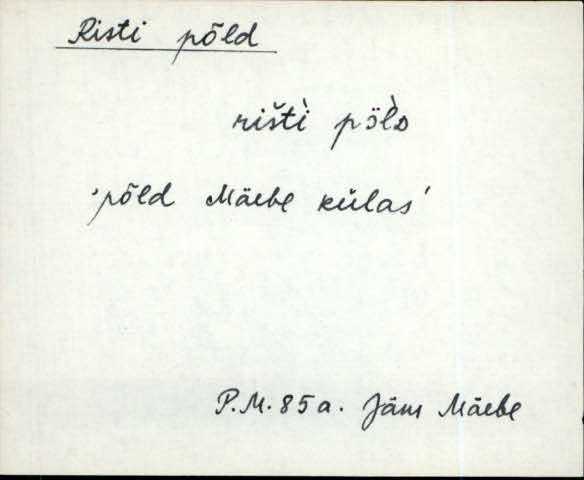 Risti põld
rištì̬ pö̭l̀ᴅ
'põld Mäebe külas'
P.M. 85 a. Jäm Mäebe